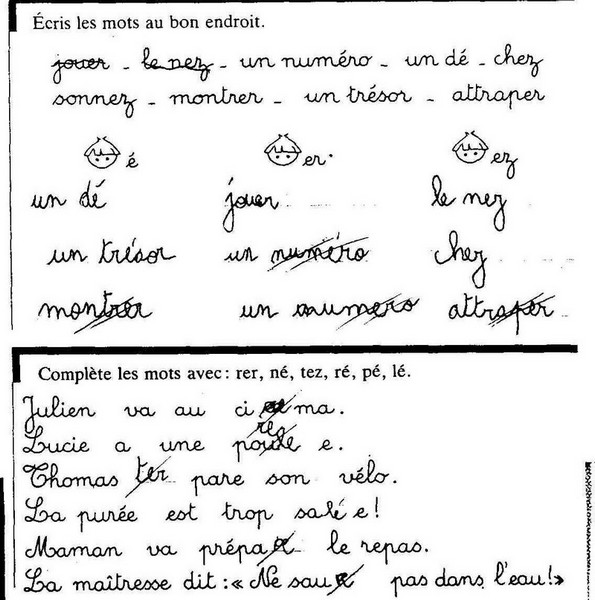 Écris les mots au bon endroit.
jouer - le nez - un numéro - un dé - chez
sonnez - montrer - un trésor - attraper
é er ez
un dé jouer le nez
un trésor un numéro chez
montrer un numero attraper
Complète les mots avec : rer, né, tez, ré, pé, lé.
Julien va au ci ma.
Lucie a une e.
Thomas ter pare son vélo.
La purée est trop salé e !
Maman va prépa le repas.
La maîtresse dit : « Ne sau pas dans l'eau ! »